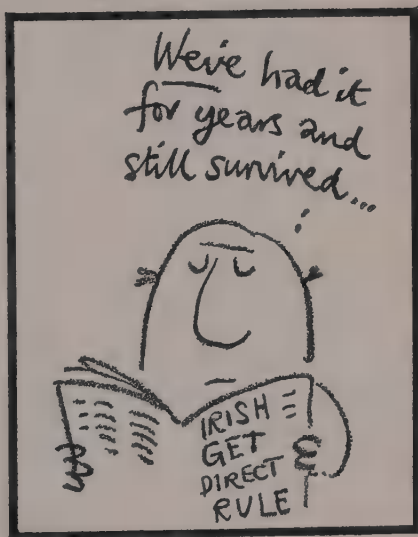 We've had it
for years and
still survived...
IRISH
GET
DIRECT
RULE